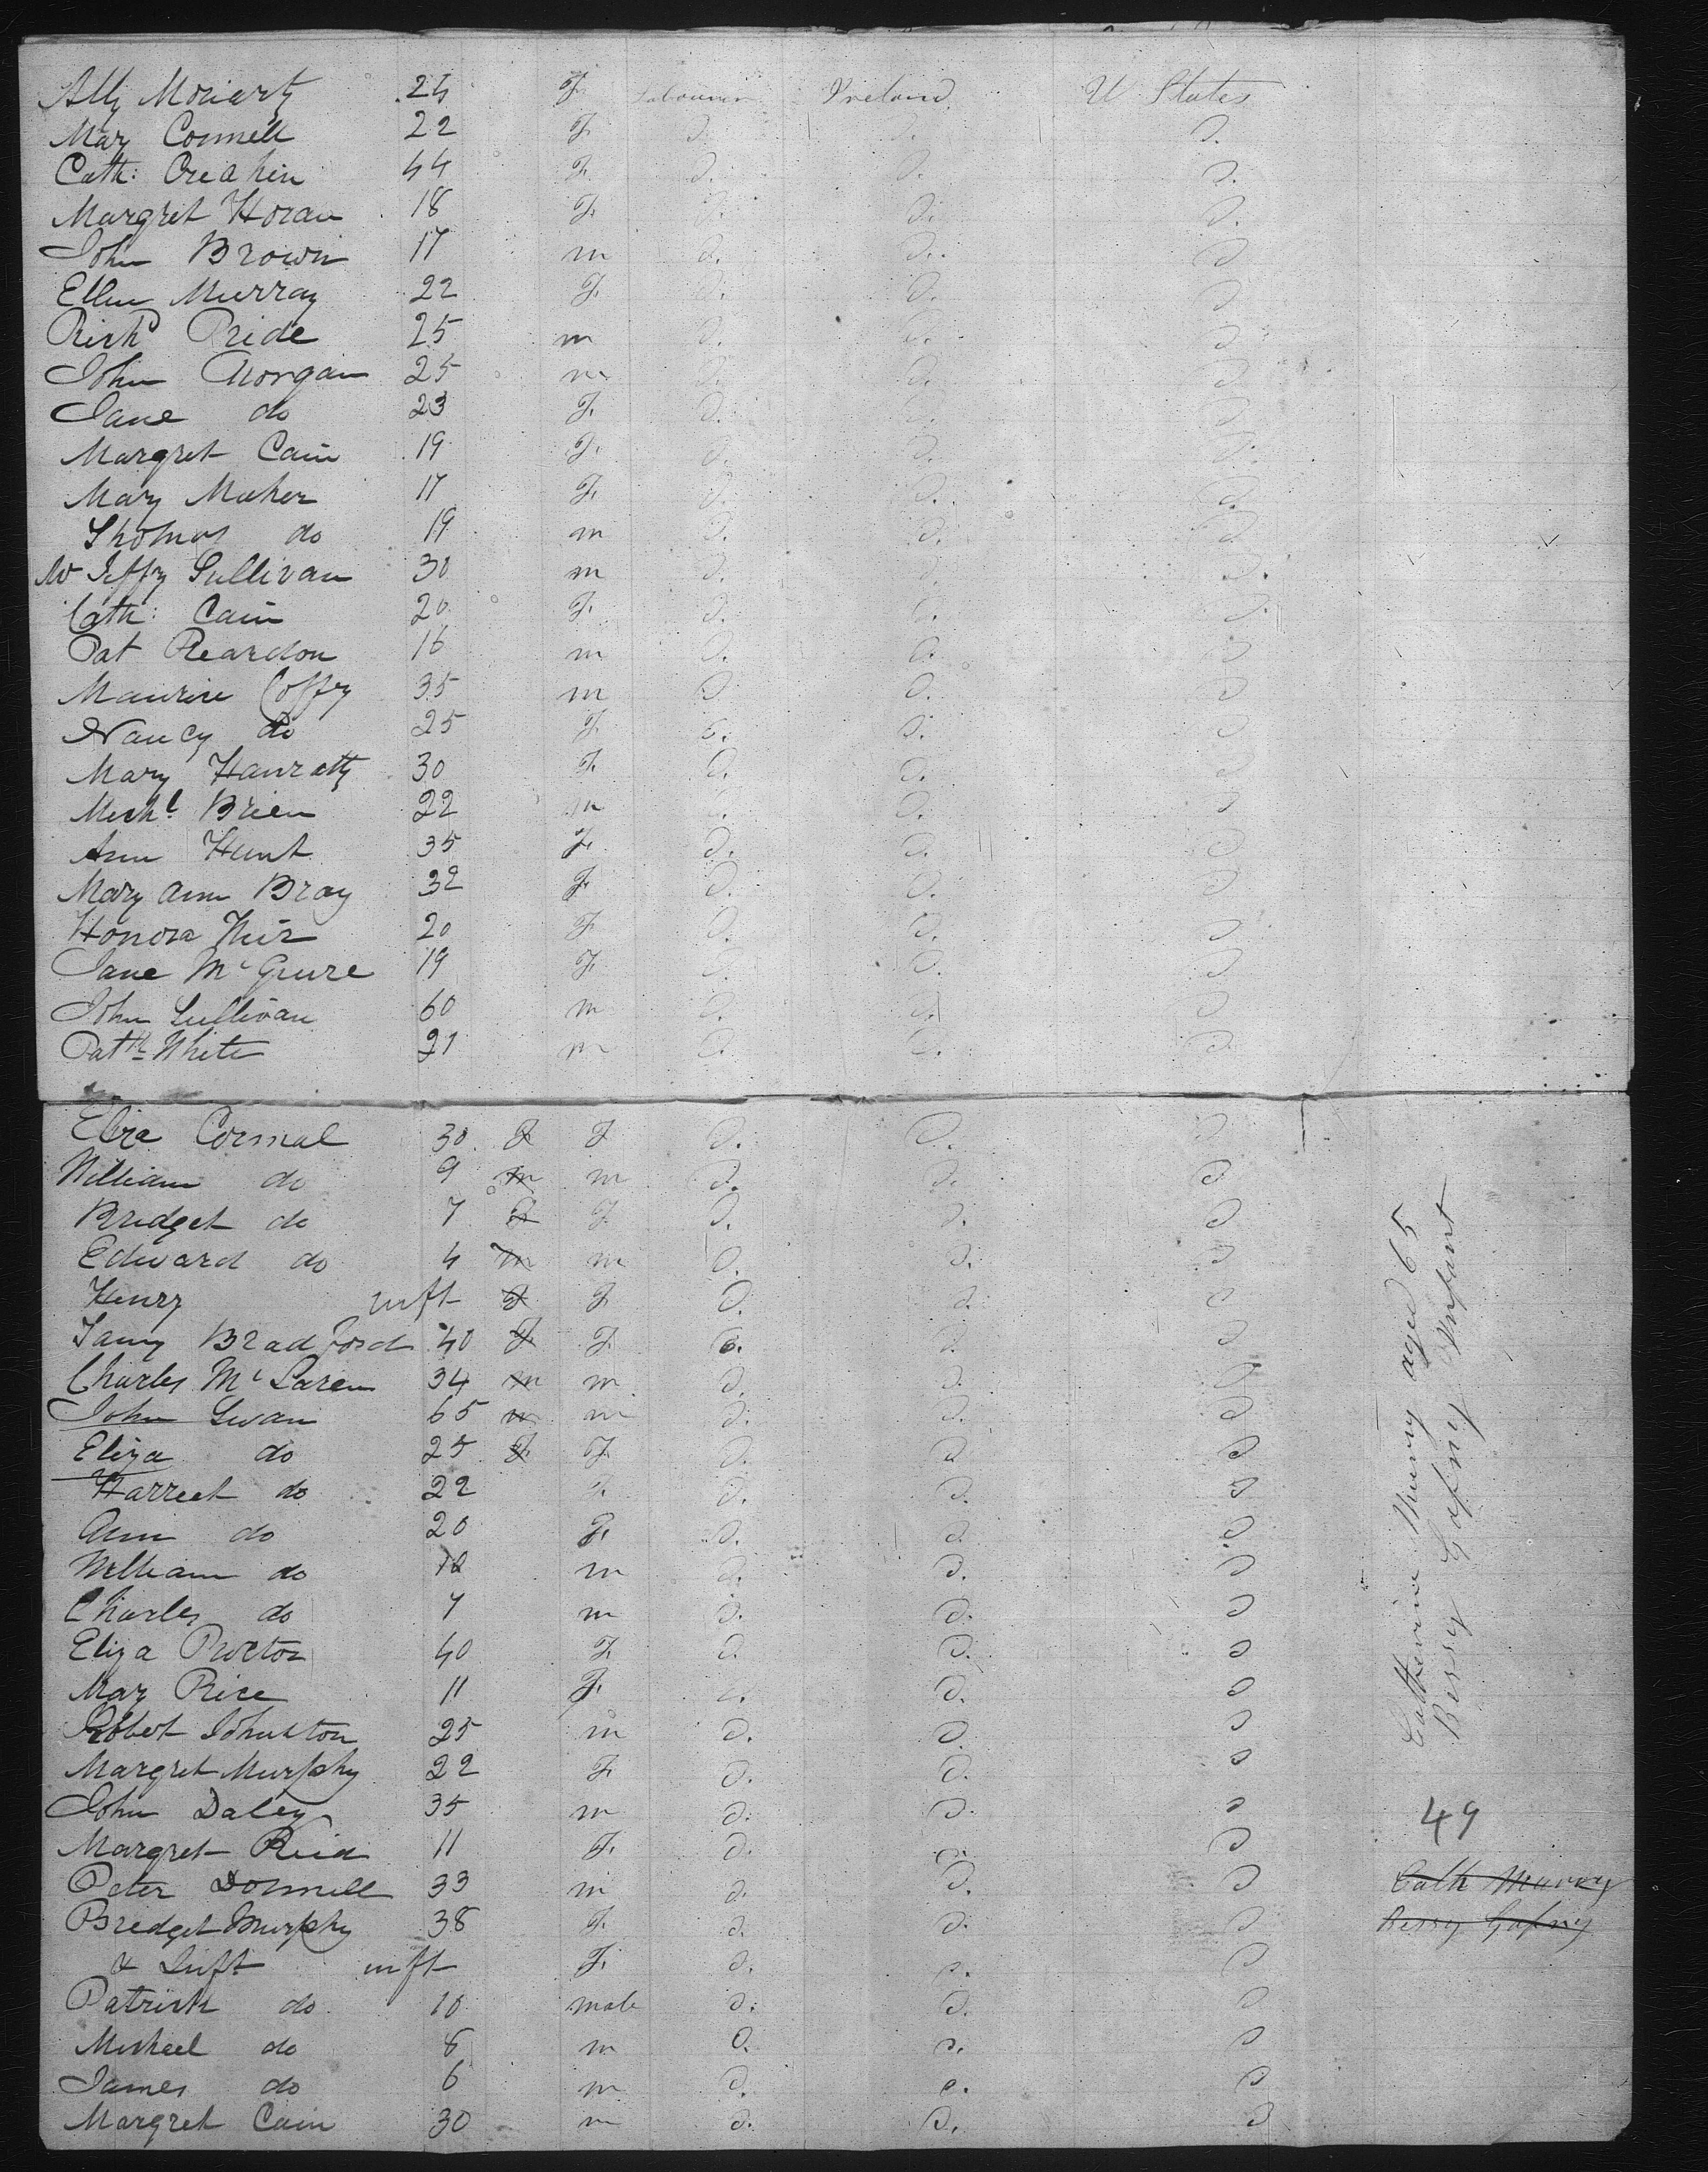 Ally Moriarty 25 F. Labourer Ireland U States
Mary Connell 22 F. D. D. D.
Cath: Creahin 44 F. D. D. D.
Margret Horan 18 F. D. D. D.
John Brown 17 m D. D. D
Ellen Murray 22 F. D. D. D
Richd Pride 25 m D. D. D
John Morgan 25 m D. D. D
Jane do 23 F. D. D. D
Margret Cain 19 F. D. D. D.
Mary Maher 17 F. D. D. D.
Thomas do 19 m D. D. D
Jeffry Sullivan 30 m D. D. D.
Cath: Cain 20 F. D. D. D.
Pat Reardon 16 m D. D. D
Maurice Coffry 35 m D D. D
Nancy do 25 F. D. D. D
Mary Hanratty 30 F. D. D. D
Michl Brien 22 m D. D. D
Ann Hunt 35 F. D. D. D
Mary Ann Bray 32 F. D. D. D
Honora 20 F. D. D. D
Jane McGuire 19 F. D. D. D
John Sullivan 60 m D. D. D
Patk White 21 m D. D. D
Eliza Cormal 30 F F D. D. D
William do 9 m m D. D. D
Bridget do 7 F F D. D. D
Edward do 4 m m D. D. D
Henry inft F F D. D. D
Bradford 40 F. F. D. D. D
Charles McLaren 34 m m D. D. D
John Swan 65 m m D. D. D
Eliza do 25 F. F D. D D
Harreet do 22 F. D. D. D
Ann do 20 F. D. D. D
William do 12 m D. D. D
Charles do 7 m D. D. D
Eliza Procton 40 F. D. D. D
Mary Rice 11 F. D. D. D
Robert Johnston 25 m D. D. D
Margret Murphy 22 F. D. D. D
John Daley 35 m D. D. D
Margret Reid 11 F. D. D. D
Peter Donnell 33 m D. D. D
Bredget Murphy 38 F. D. D. D
& Inft inft F. D. D. D
Patrick do 10 male D. D. D
Michael do 8 m D. D. D
James do 6 m D. D. D
Margret Cain 30 m D. D. D
Catherine Murry aged 65
Berry Gafny Infant
49
Cath Murry
Berry Gafny